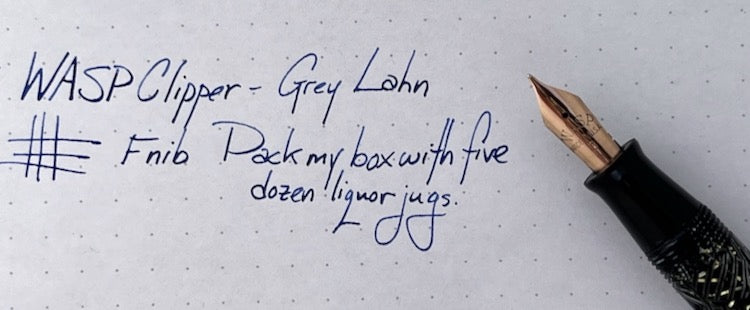 WASP Clipper - Grey Lahn
F nib Pack my box with five
dozen liquor jugs.